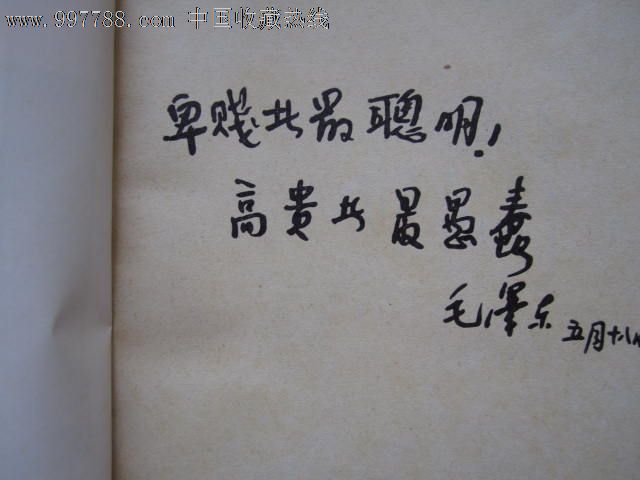 www.997788.com 中国收藏热线
卑贱者最聪明!
高贵者最愚蠢
毛泽东 五月十八